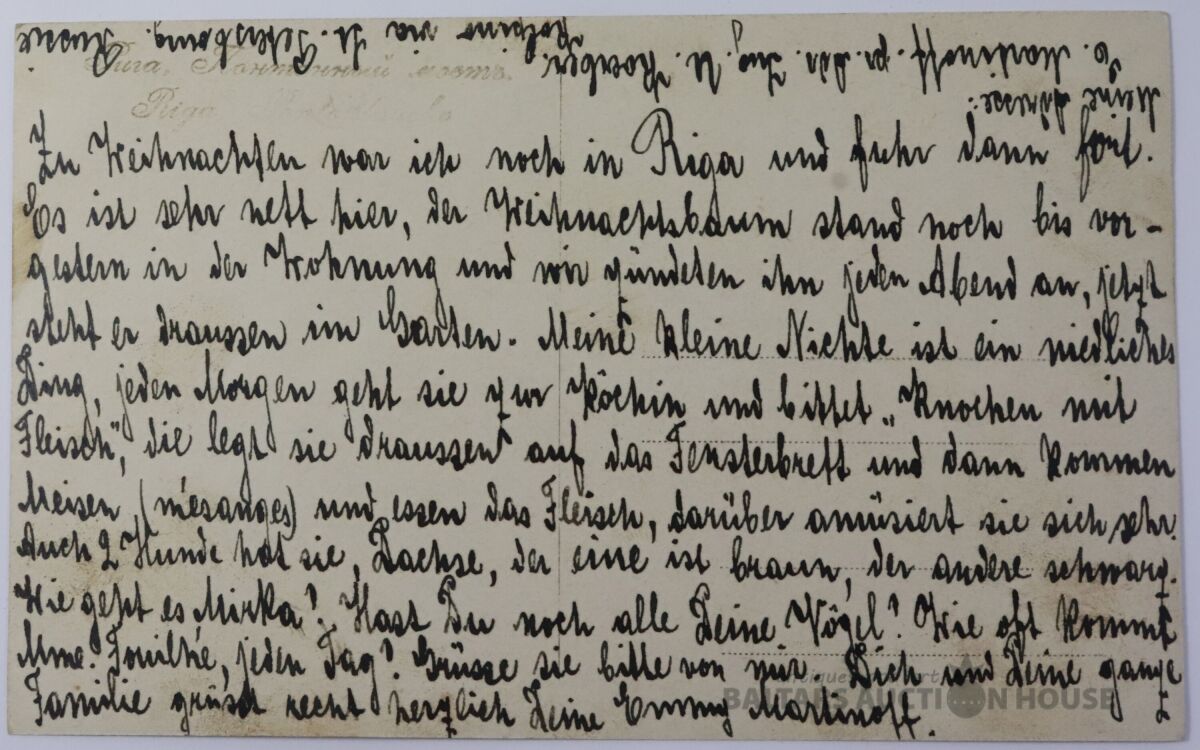 Meine Adresse:
E. Martinoff. pr. Adr. Ing. U.
Kolpino via St. Petersbourg. Russie.
Рига, Понтонный мостъ.
Riga
Zu Weihnachten war ich noch in Riga und fuhr dann fort.
Es ist sehr nett hier, der Weihnachtsbaum stand noch bis vor-
gestern in der Wohnung und wir zündeten ihn jeden Abend an, jetzt
steht er draussen im Garten. Meine kleine Nichte ist ein niedliches
Ding, jeden Morgen geht sie zur Köchin und bittet „Knochen mit
Fleisch", die legt sie draussen auf das Fensterbrett und dann kommen
Meisen, (mésanges) und essen das Fleisch, darüber amüsiert sie sich sehr.
Auch 2 Hunde hat sie, Dachse, der eine ist braun, der andere schwarz.
Wie geht es Mirka? Hast Du noch alle Deine Vögel? Wie oft kommt
Mme. jeden Tag? Grüsse sie bitte von mir. Dich und Deine ganze
Familie grüsst recht herzlich Deine Emmy Martinoff.
BALTARS AUCTION HOUSE